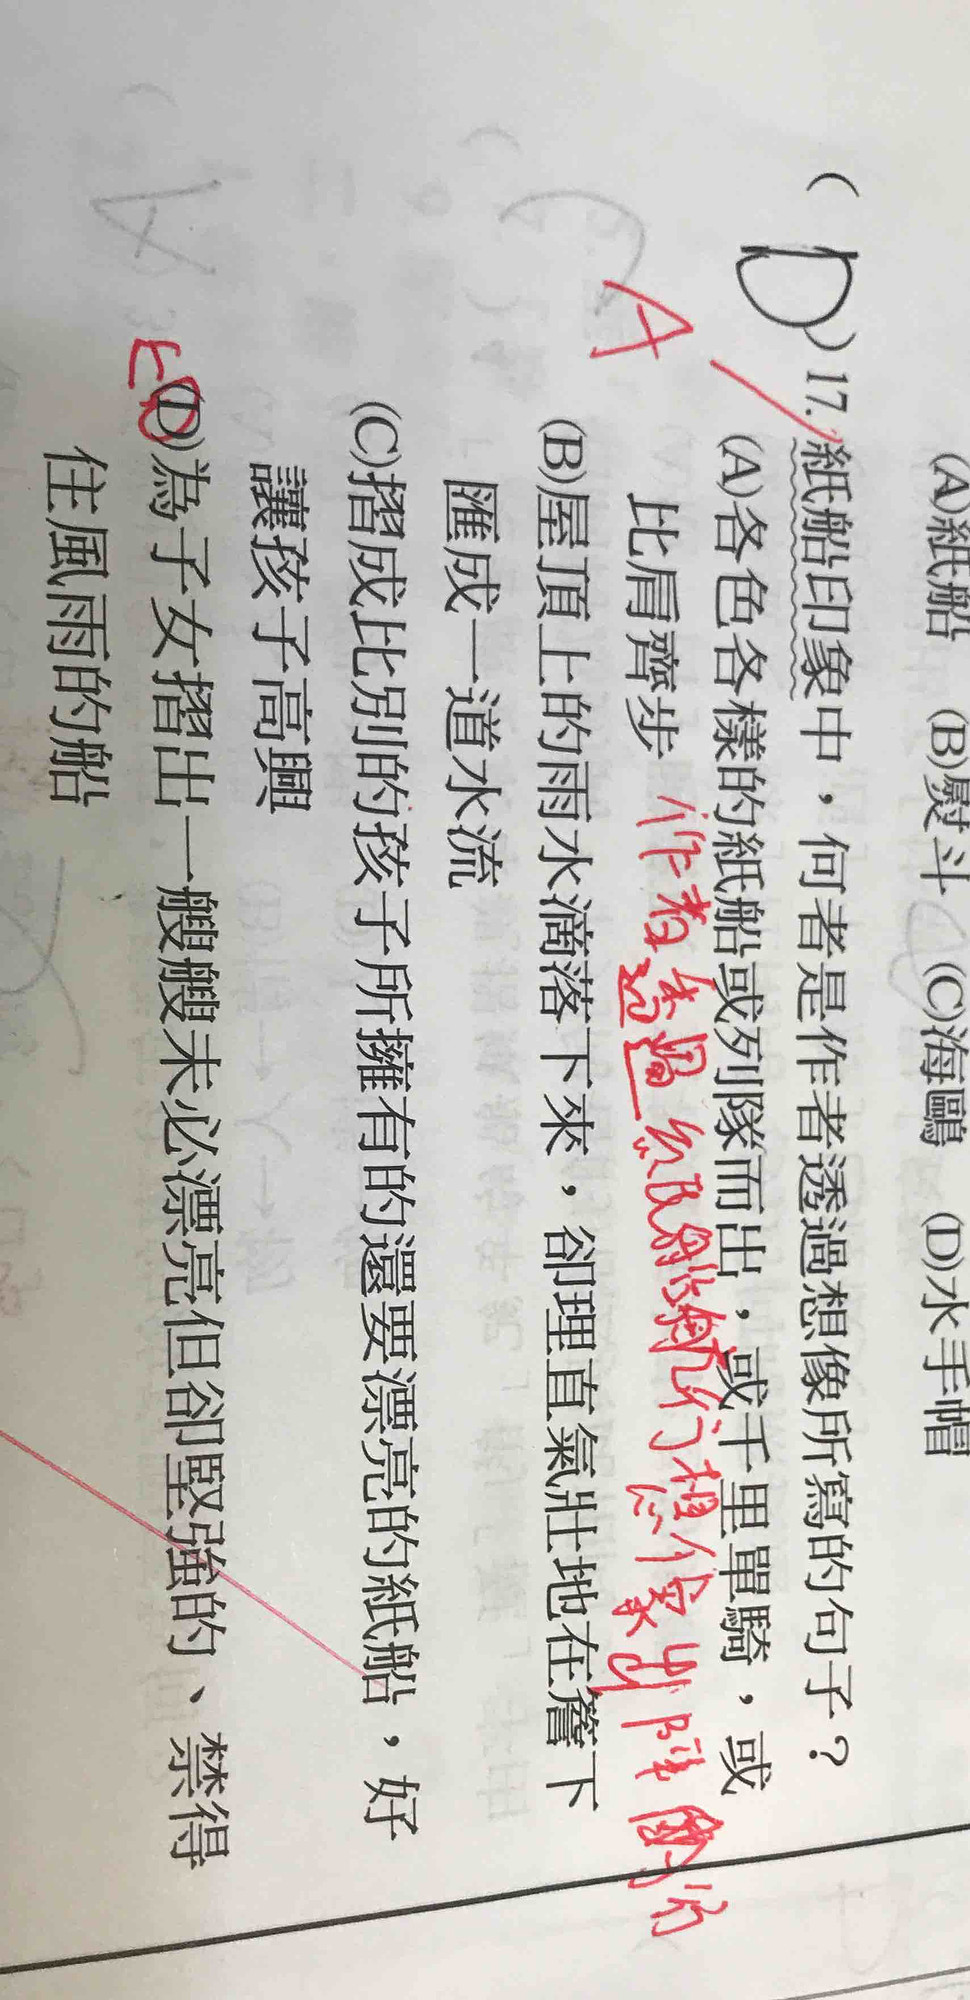 (A)紙船 (B)熨斗 (C)海鷗 (D)水手帽
( D )17.紙船印象中，何者是作者透過想像所寫的句子？
A
(A)各色各樣的紙船或列隊而出，或千里單騎，或
比肩齊步
作者透過紙船航行想像出 的
(B)屋頂上的雨水滴落下來，卻理直氣壯地在簷下
匯成一道水流
(C)摺成比別的孩子所擁有的還要漂亮的紙船，好
讓孩子高興
(D)為子女摺出一艘艘未必漂亮但卻堅強的、禁得
住風雨的船